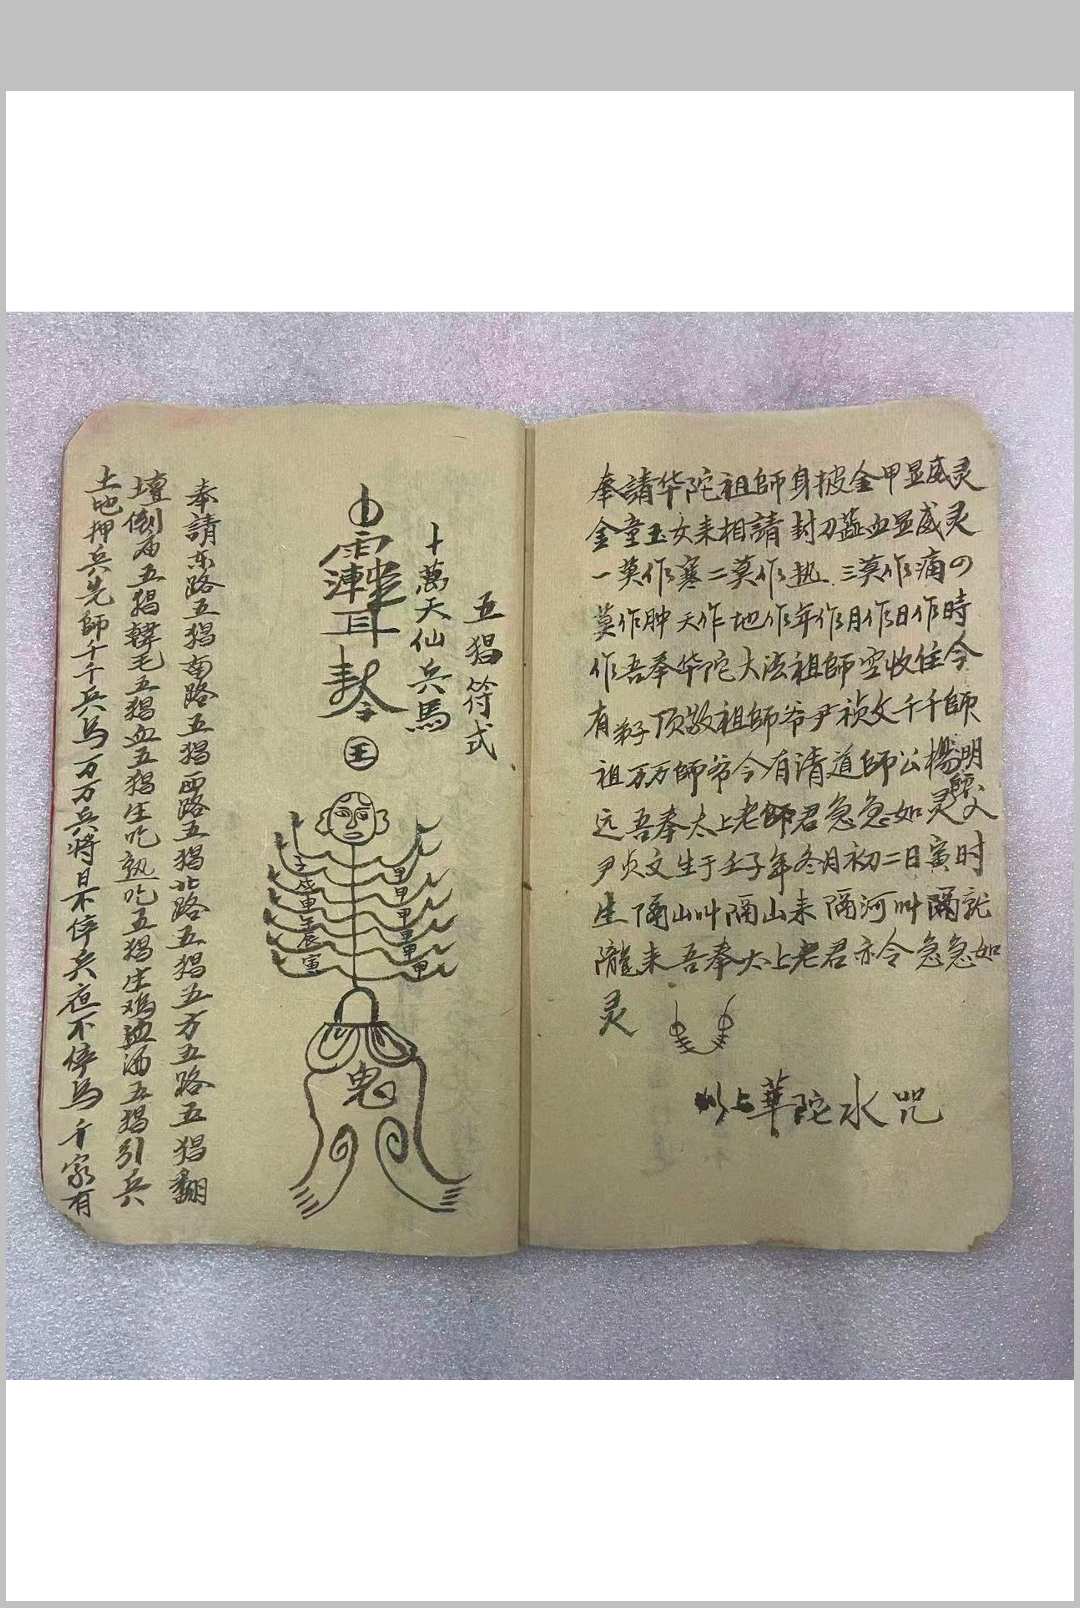 奉請华陀祖師身披金甲显威灵
金童玉女来相請封刀蓋血显威灵
一莫作寒二莫作热三莫作痛四
莫作肿天作地作年作月作日作時
作吾奉华陀大法祖師空收住今
有弟子顶敬祖師爷尹祯文千千師
祖万万師爷今有清道師公楊明
远吾奉太上老師君急急如灵
尹贞文生于壬子年冬月初二日寅时
生隔山叫隔山来隔河叫隔就
隴来吾奉太上老君亦令急急如
灵
以上華陀水咒
五猖符式
十萬天仙兵馬
王
子
戌
申
午
辰
寅
甲
甲
甲
甲
甲
甲
鬼
奉請东路五猖南路五猖西路五猖北路五猖五方五路五猖翻
壇倒庙五猖韓毛五猖血五猖生吃熟吃五猖生鸡洒五猖引兵
土地押兵先師千千兵馬万万兵将日不停兵夜不停馬千家有